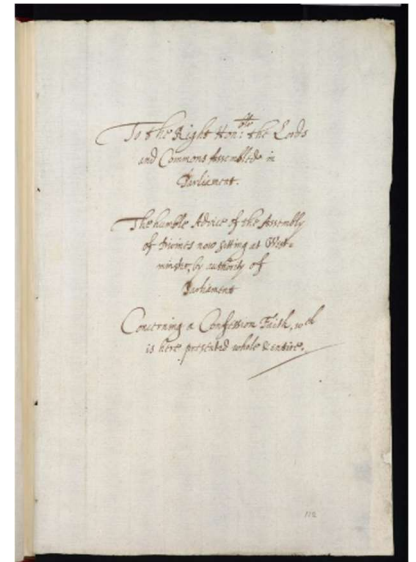 To the Right Hon:ble the Lords
and Commons Assembled in
Parliament.
The humble Advice of the Assembly
of Divines now sitting at West-
minster, by authority of
Parliament
Concerning a Confession Faith, wch
is here presented whole & entire.
112